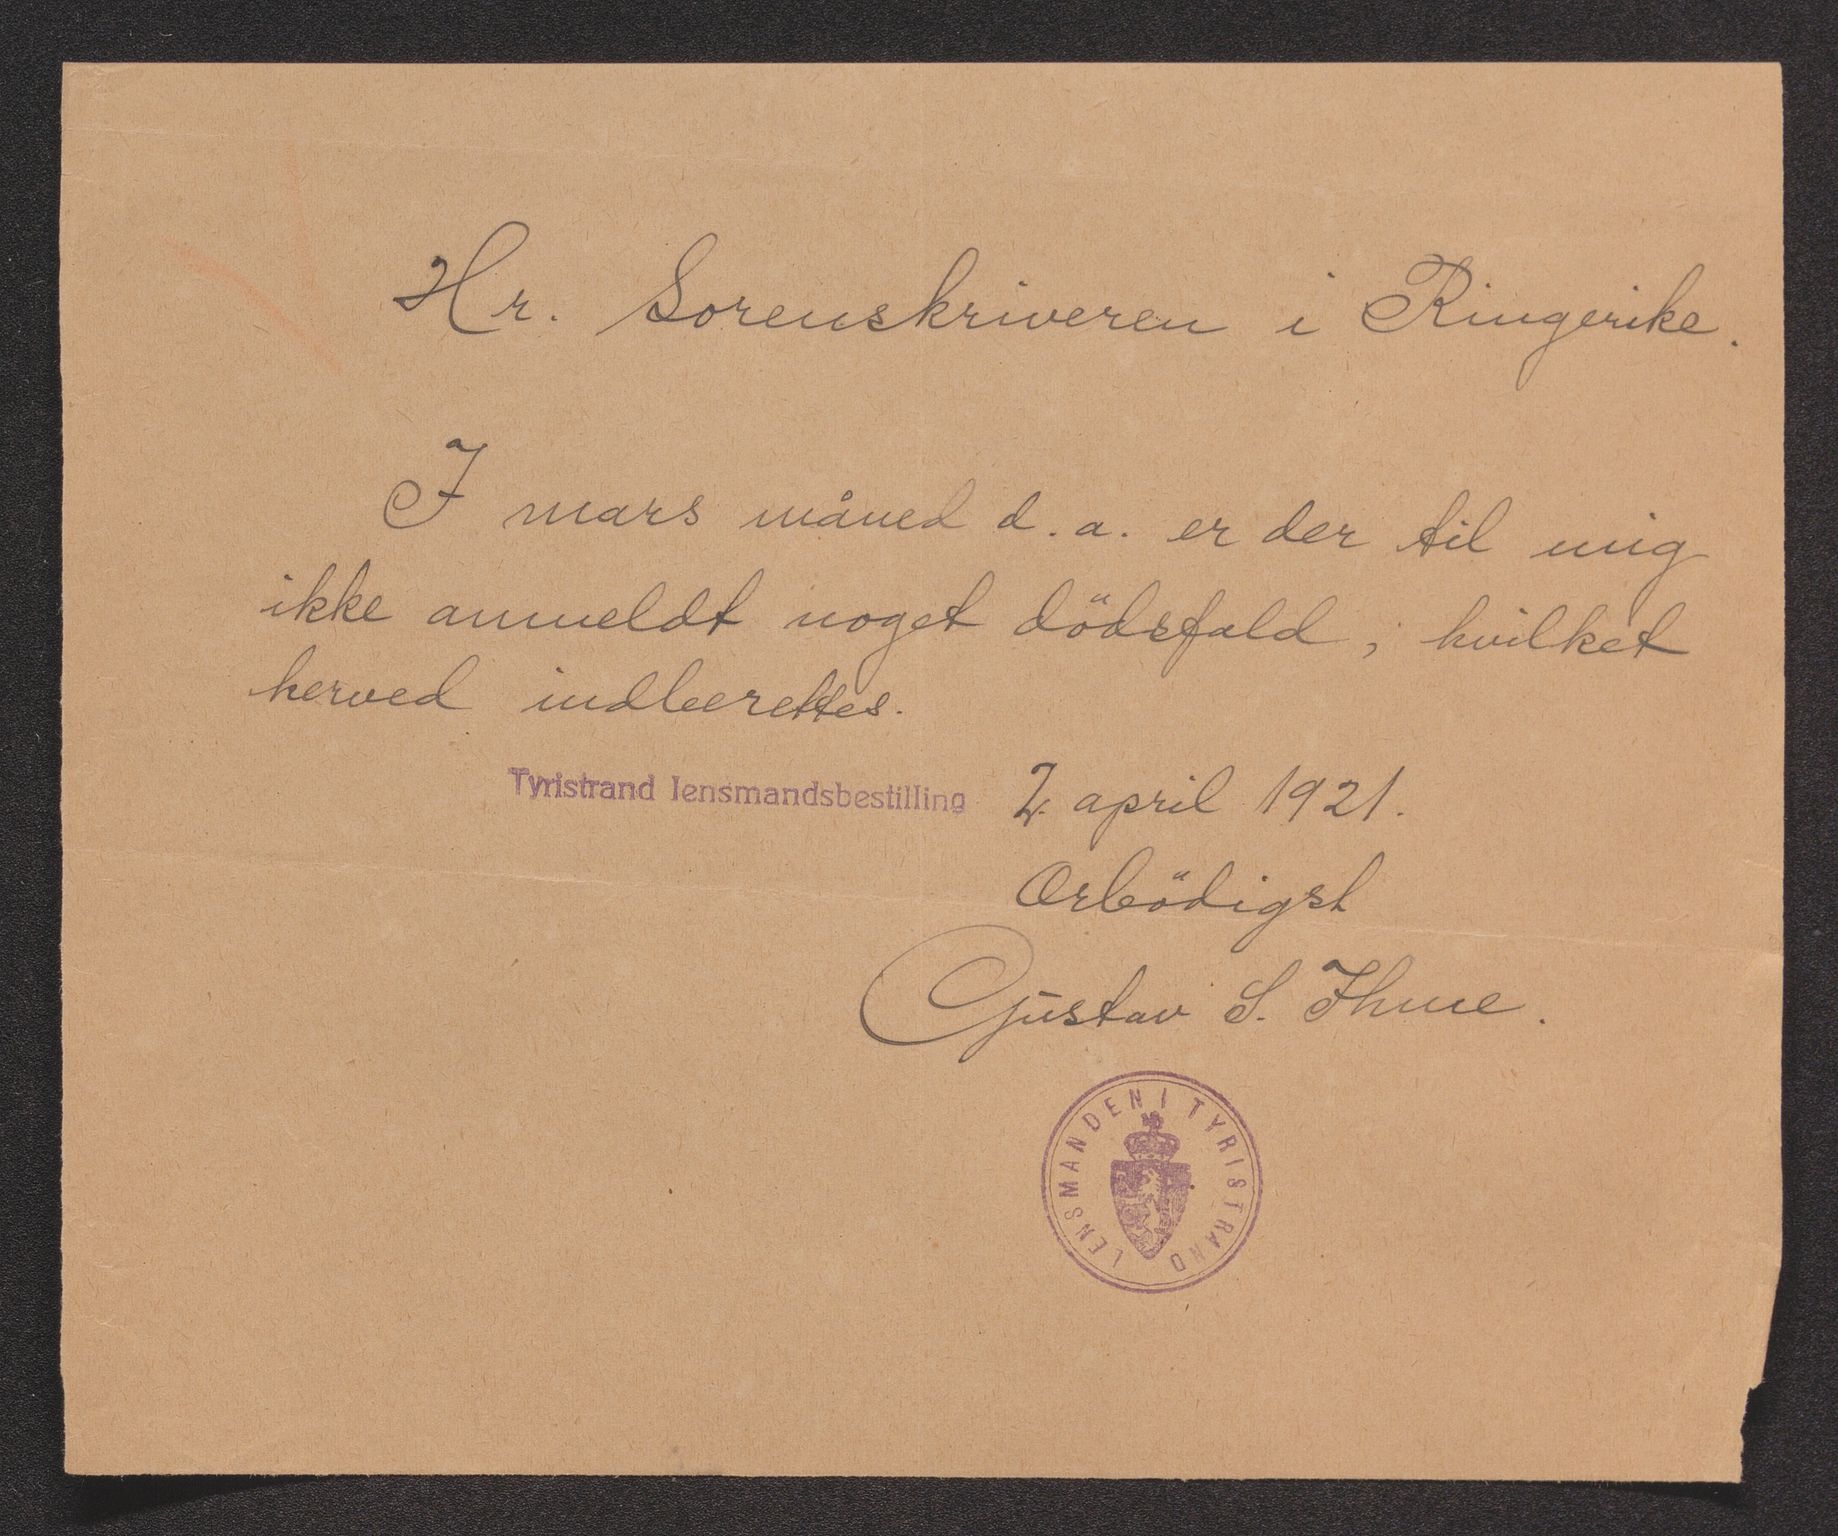 Hr. Sorenskriveren i Ringerike.
I mars måned d. a. er der til mig
ikke anmeldt noget dödsfald, hvilket
herved indberettes.
Tyristrand lensmandsbestilling 2. april 1921.
Ærbödigst
Gustav S. Ihme.
LENSMANDEN I TYRISTRAND